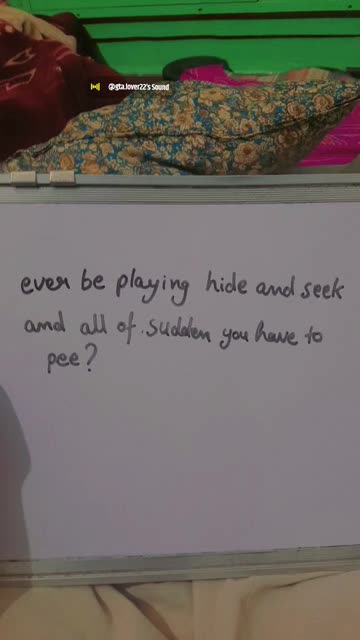 @gta.lover22's Sound
ever be playing hide and seek
and all of sudden you have to
pee?